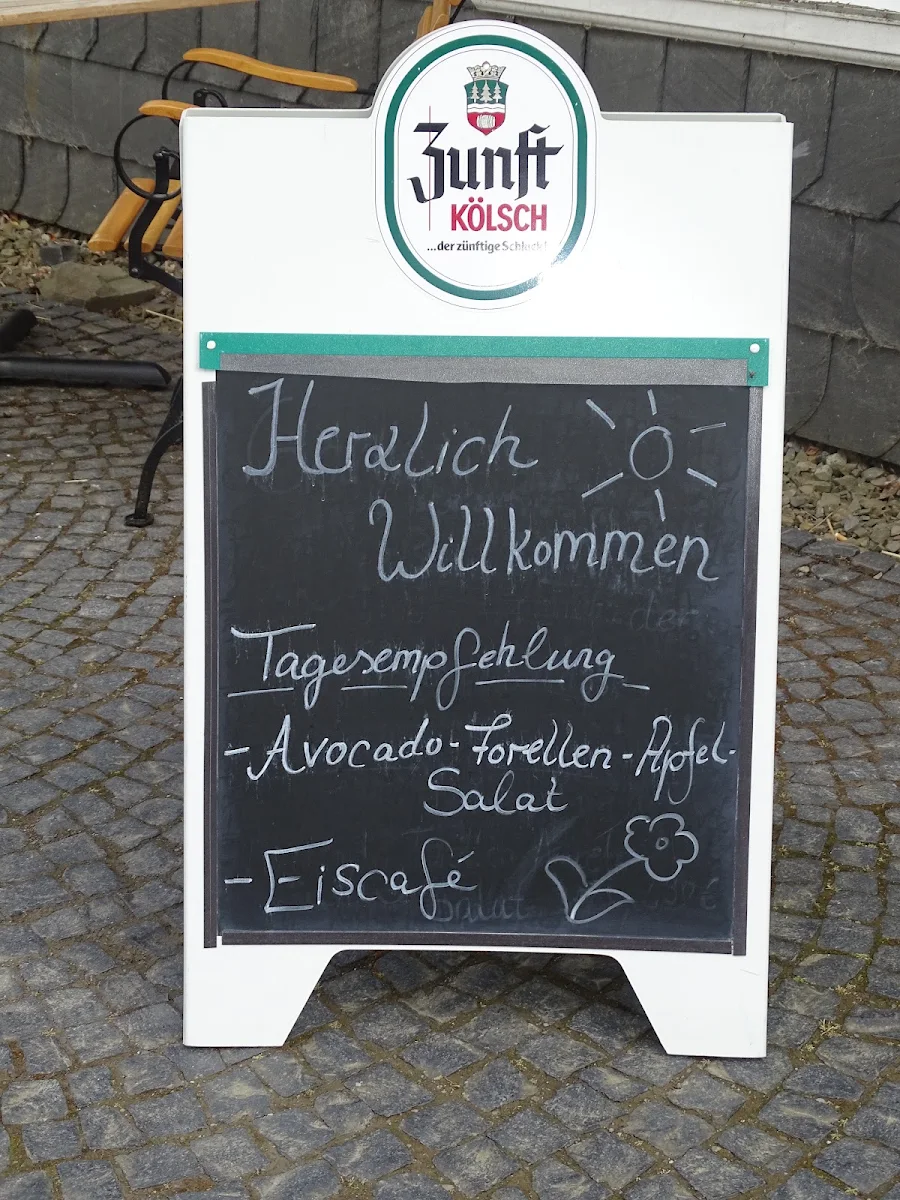 Zunft
KÖLSCH
...der zünftige Schluck!
Herzlich
Willkommen
der
Tagesempfehlung
- Avocado-Forellen-Apfel-
Salat
- Eiscafé
Salat